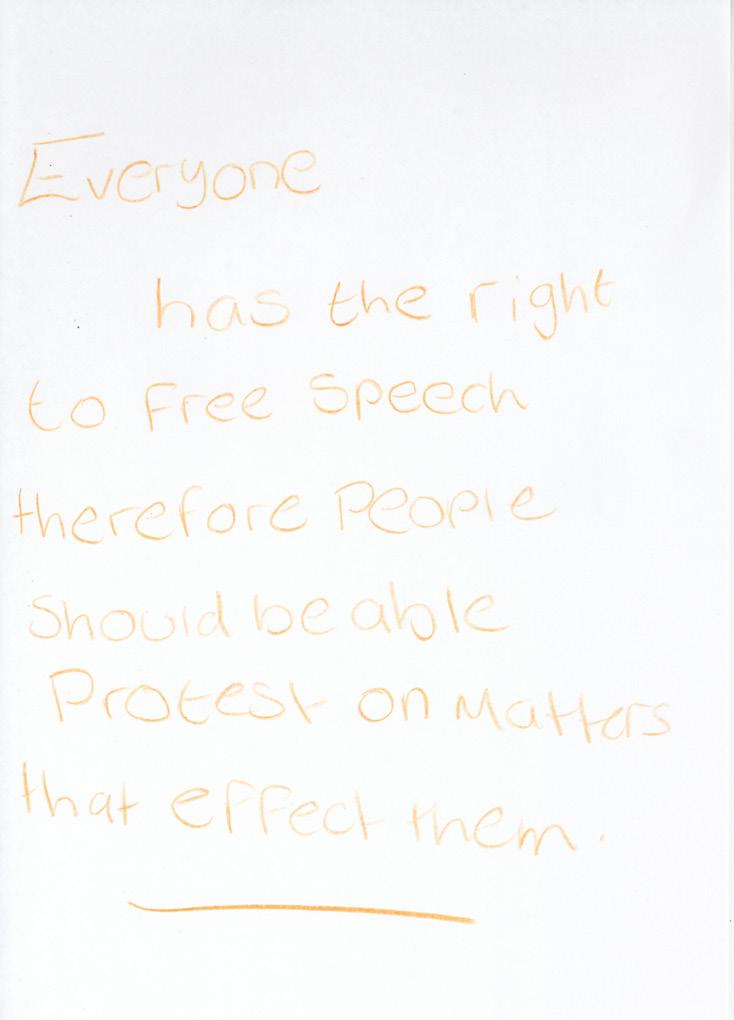 Everyone
has the right
to free speech
therefore people
should be able
Protest on Matters
that effect them.